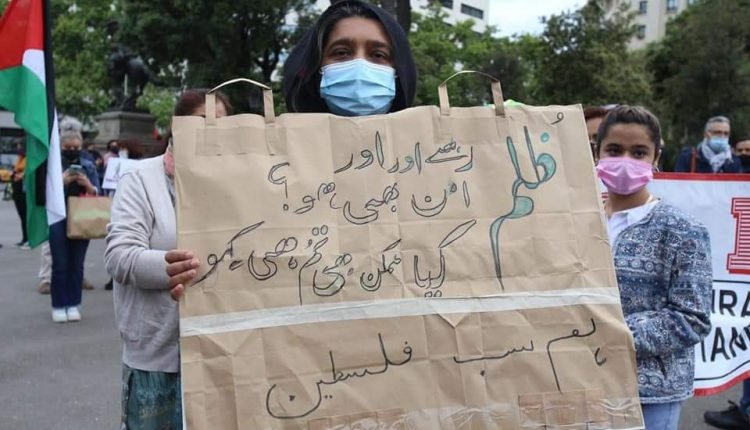 ظُلم رہے اور اور
امن بھی ہو؟
کیا ممکن ہے تُم ہی کہو
ہم سب فلسطین